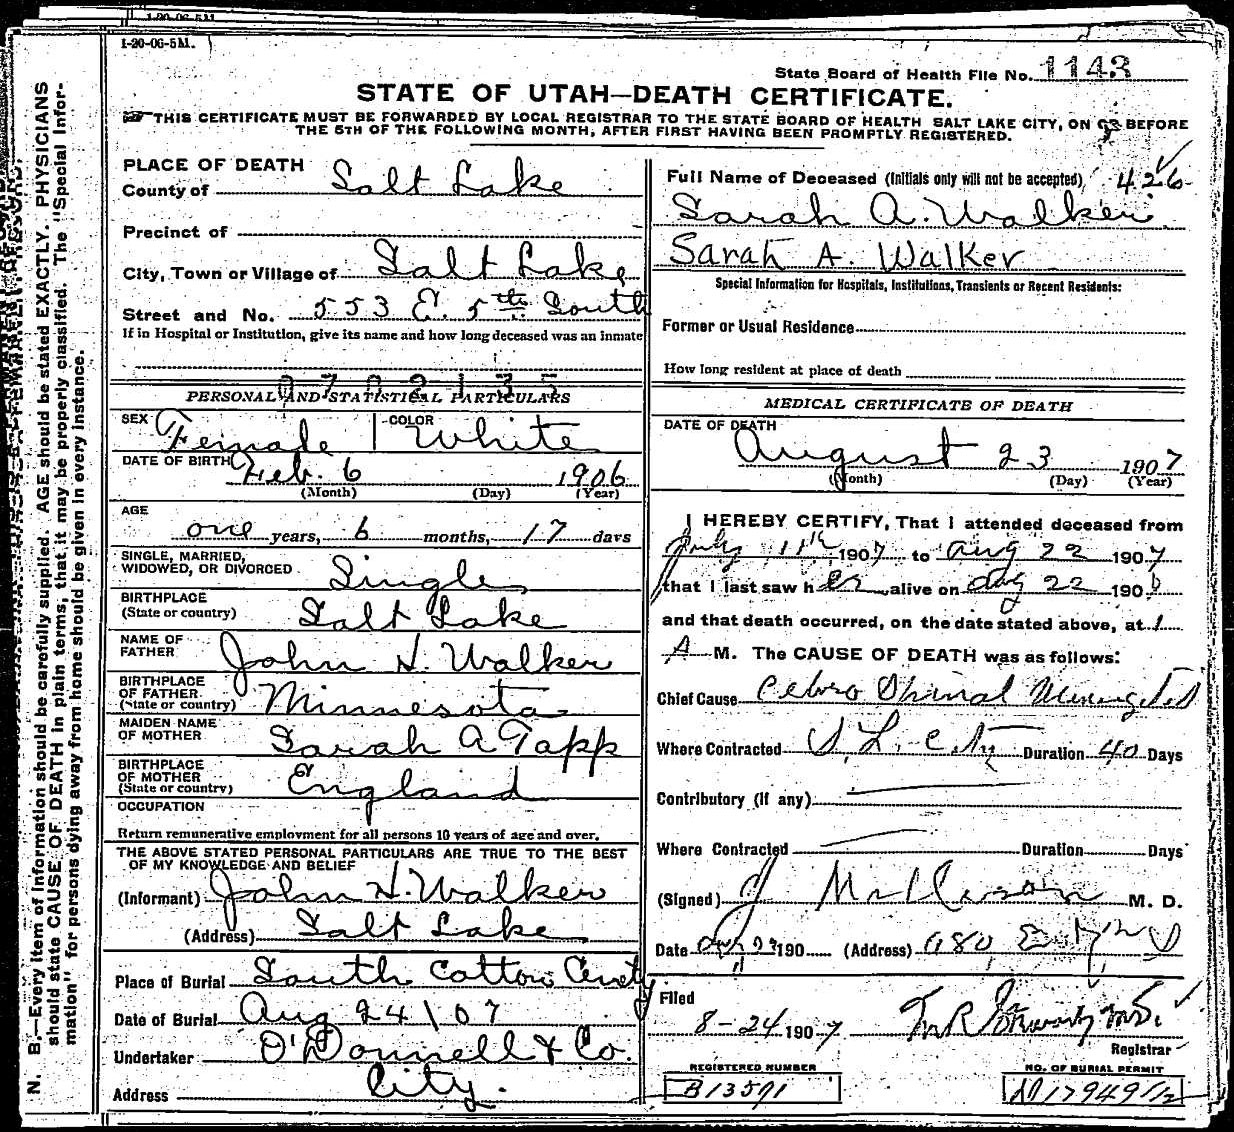 1-20-06-5M.
State Board of Health File No. 1143
STATE OF UTAH—DEATH CERTIFICATE.
THIS CERTIFICATE MUST BE FORWARDED BY LOCAL REGISTRAR TO THE STATE BOARD OF HEALTH SALT LAKE CITY, ON OR BEFORE
THE 5TH OF THE FOLLOWING MONTH, AFTER FIRST HAVING BEEN PROMPTLY REGISTERED.
N. B.—Every item of Information should be carefully supplied. AGE should be stated EXACTLY. PHYSICIANS
should state CAUSE OF DEATH in plain terms, that it may be properly classified. The "Special Infor-
mation" for persons dying away from home should be given in every instance.
PLACE OF DEATH
County of Salt Lake
Precinct of
City, Town or Village of Salt Lake
Street and No. 553 E. 5th South
If in Hospital or Institution, give its name and how long deceased was an inmate
0702135
PERSONAL AND STATISTICAL PARTICULARS
SEX Female COLOR White
DATE OF BIRTH Feb. 6 1906
(Month) (Day) (Year)
AGE
one years, 6 months, 17 days
SINGLE, MARRIED,
WIDOWED, OR DIVORCED Single
BIRTHPLACE
(State or country) Salt Lake
NAME OF
FATHER John H. Walker
BIRTHPLACE
OF FATHER
(State or country) Minnesota
MAIDEN NAME
OF MOTHER Sarah A Tapp
BIRTHPLACE
OF MOTHER
(State or country) England
OCCUPATION
Return remunerative employment for all persons 10 years of age and over.
THE ABOVE STATED PERSONAL PARTICULARS ARE TRUE TO THE BEST
OF MY KNOWLEDGE AND BELIEF
(Informant) John H. Walker
(Address) Salt Lake
Place of Burial South Cotton
Date of Burial Aug 24/07
Undertaker O'Donnell & Co.
Address City.
Full Name of Deceased (Initials only will not be accepted) 426
Sarah A. Walker
Sarah A. Walker
Special Information for Hospitals, Institutions, Transients or Recent Residents:
Former or Usual Residence
How long resident at place of death
MEDICAL CERTIFICATE OF DEATH
DATE OF DEATH
August 23 1907
(Month) (Day) (Year)
I HEREBY CERTIFY, That I attended deceased from
July 11th 1907 to Aug 22 1907
that I last saw her alive on Aug 22 190
and that death occurred, on the date stated above, at 1
A M. The CAUSE OF DEATH was as follows:
Chief Cause Cebro Spinal
Where Contracted S. L. City Duration 40 Days
Contributory (if any)
Where Contracted Duration Days
(Signed) M. D.
Date 190 (Address)
Filed
8-24 1907
Registrar
REGISTERED NUMBER
B13571
NO. OF BURIAL PERMIT